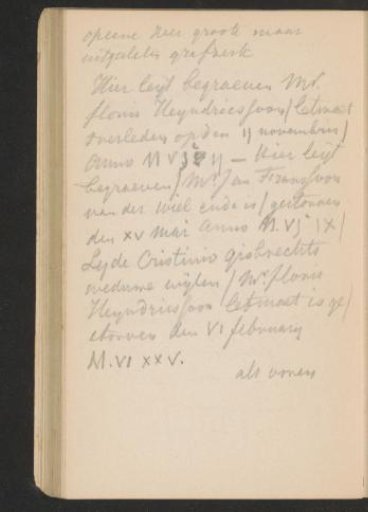 opeene zeer groote maar
uitgesleten grafzerk
Hier leyt begraeven Mr.
floris Heyndricssoon/
overleden op den 11 november/
Anno M V – Hier leyt
begraeven/ Mr. Jan Franssoon
van der Wiel ende is/ gestorven
den XV Mai Anno M. VJ IX/
Lyde Cristinio gisbrechts
weduwe wijlen/ Mr. floris
Heyndricssoon is ge/
storven den VI february
M. VI XXV.
als voren